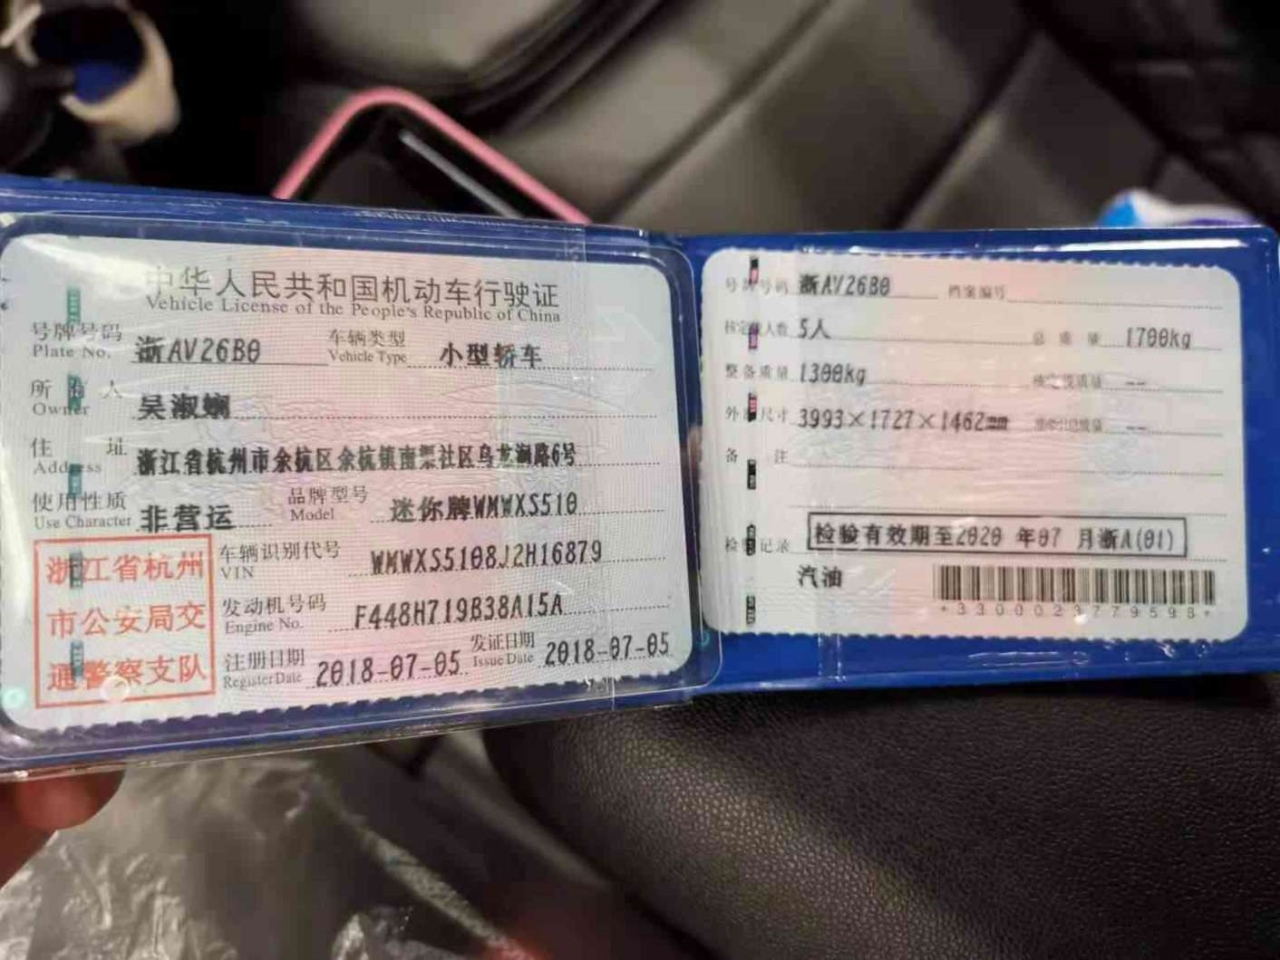 中华人民共和国机动车行驶证
Vehicle License of the People's Republic of China
号牌号码 浙AV26B0 车辆类型 小型轿车
Plate No. Vehicle Type
所有人 吴淑娴
Owner
住址 浙江省杭州市余杭区余杭镇南渠社区乌龙涧路6号
Address
使用性质 非营运 品牌型号 迷你牌WMWXS510
Use Character Model
浙江省杭州
市公安局交
通警察支队
车辆识别代号 WMWXS5108J2H16879
VIN
发动机号码 F448H719B38A15A
Engine No.
注册日期 2018-07-05 发证日期 2018-07-05
Register Date Issue Date
号牌号码 浙AV26B0 档案编号
核定载人数 5人 总质量 1700kg
整备质量 1300kg 核定载质量 --
外廓尺寸 3993×1727×1462mm 准牵引总质量 --
备注
检验记录 检验有效期至2020年07月浙A(01)
汽油
*3300023779598*